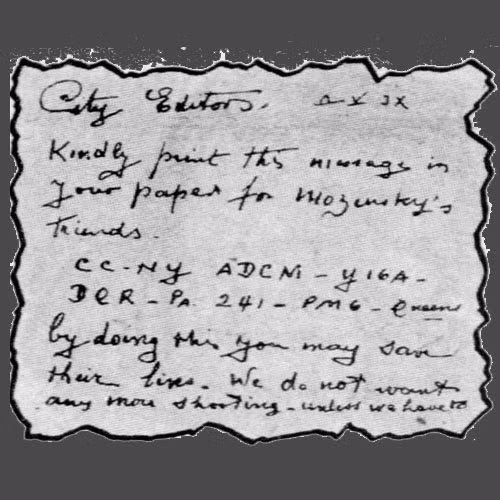 City Editors.
Kindly print this message in
your paper for Mozynsky's
friends.
CC-NY ADCM - Y16A -
DQR - PA. 241 - PM6 - Queens
by doing this you may save
their lives. We do not want
any more shooting - unless we have to